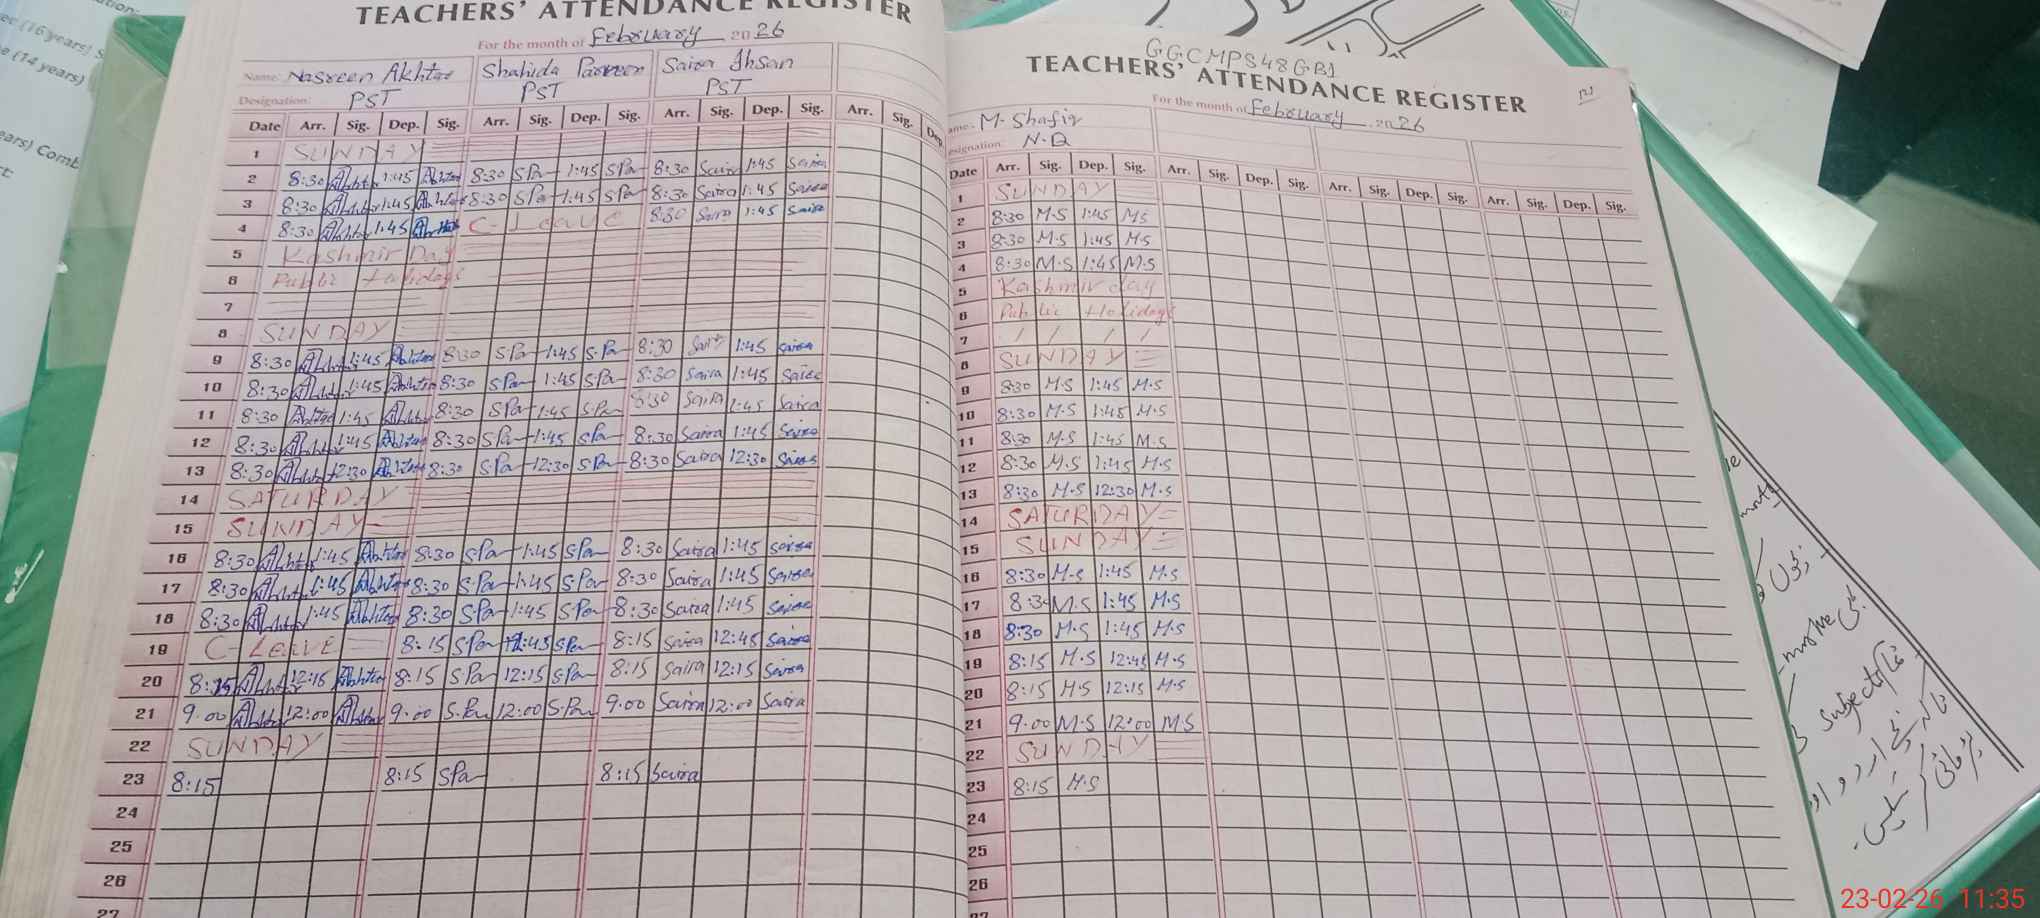 TEACHERS' ATTENDANCE REGISTER
For the month of February 2026
Name: Nasreen Akhtar Shahida Parveen Saira Ahsan
Designation: PST PST PST
Date Arr. Sig. Dep. Sig. Arr. Sig. Dep. Sig. Arr. Sig. Dep. Sig. Arr. Sig. Dep
1 SUNDAY
2 8:30 Akhtar 1:45 Akhtar 8:30 SPa 1:45 SPa 8:30 Saira 1:45 Saira
3 8:30 Akhtar 1:45 Akhtar 8:30 SPa 1:45 SPa 8:30 Saira 1:45 Saira
4 8:30 Akhtar 1:45 Akhtar C-Leave 8:30 Saira 1:45 Saira
5 Kashmir Day
6 Public Holidays
7
8 SUNDAY
9 8:30 Akhtar 1:45 Akhtar 8:30 SPa 1:45 S.Pa 8:30 Saira 1:45 Saira
10 8:30 Akhtar 1:45 Akhtar 8:30 SPa 1:45 SPa 8:30 Saira 1:45 Saira
11 8:30 Akhtar 1:45 Akhtar 8:30 SPa 1:45 S.Pa 8:30 Saira 1:45 Saira
12 8:30 Akhtar 1:45 Akhtar 8:30 SPa 1:45 SPa 8:30 Saira 1:45 Saira
13 8:30 Akhtar 12:30 Akhtar 8:30 SPa 12:30 SPa 8:30 Saira 12:30 Saira
14 SATURDAY
15 SUNDAY
16 8:30 Akhtar 1:45 Akhtar 8:30 SPa 1:45 SPa 8:30 Saira 1:45 Saira
17 8:30 Akhtar 1:45 Akhtar 8:30 S.Pa 1:45 S.Pa 8:30 Saira 1:45 Saira
18 8:30 Akhtar 1:45 Akhtar 8:30 SPa 1:45 SPa 8:30 Saira 1:45 Saira
19 C-Leave 8:15 SPa 12:45 SPa 8:15 Saira 12:45 Saira
20 8:15 Akhtar 12:15 Akhtar 8:15 SPa 12:15 SPa 8:15 Saira 12:15 Saira
21 9.00 Akhtar 12:00 Akhtar 9.00 S.Pa 12:00 S.Pa 9.00 Saira 12:00 Saira
22 SUNDAY
23 8:15 8:15 SPa 8:15 Saira
24
25
26
27
GGCMPS48GB1
TEACHERS' ATTENDANCE REGISTER
For the month of February 2026
ame:- M. Shafiq
esignation: N.Q
Date Arr. Sig. Dep. Sig. Arr. Sig. Dep. Sig. Arr. Sig. Dep. Sig. Arr. Sig. Dep. Sig.
1 SUNDAY
2 8:30 M.S 1:45 MS
3 8:30 M.S 1:45 M.S
4 8:30 M.S 1:45 M.S
5 Kashmir day
6 Public Holidays
7
8 SUNDAY
9 8:30 M.S 1:45 M.S
10 8:30 M.S 1:45 M.S
11 8:30 M.S 1:45 M.S
12 8:30 M.S 1:45 M.S
13 8:30 M.S 12:30 M.S
14 SATURDAY
15 SUNDAY
16 8:30 M.S 1:45 M.S
17 8:30 M.S 1:45 M.S
18 8:30 M.S 1:45 M.S
19 8:15 M.S 12:45 M.S
20 8:15 M.S 12:15 M.S
21 9.00 M.S 12:00 M.S
22 SUNDAY
23 8:15 M.S
24
25
26
27
(16 years)
(14 years)
ears) Comb
Subject
23-02-26 11:35